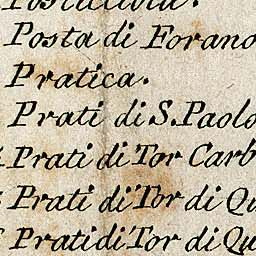 Posta di Forano
Pratica.
Prati di S. Paolo
Prati di Tor Carb
Prati di Tor di Qu
Prati di Tor di Qu